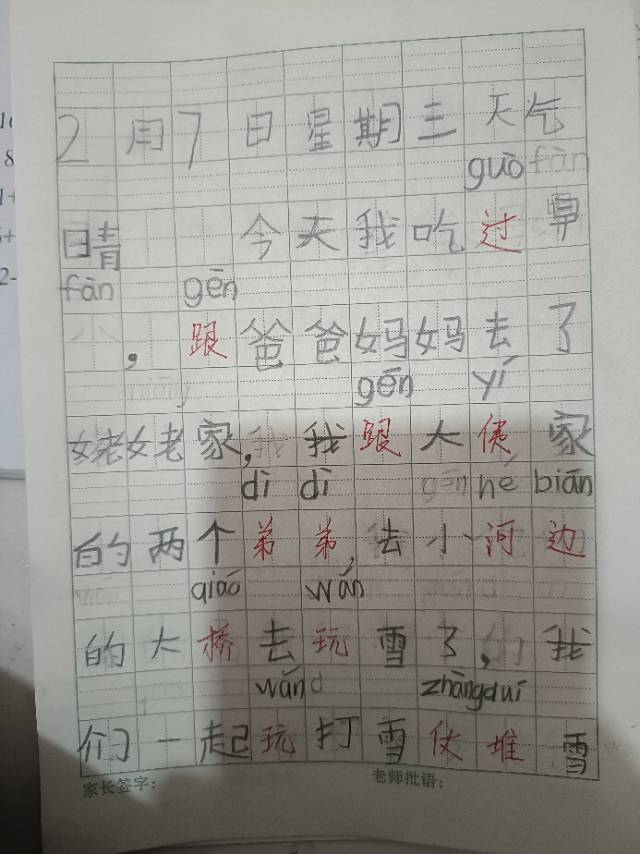 2月7日星期三天气
guò fàn
晴今天我吃过早
fàn gēn
,跟爸爸妈妈去了
gēn yí
姥姥家,我跟大姨家
dì dì gēn hé biān
的两个弟弟,去小河边
qiáo wán
的大桥去玩雪了,我
wán zhàngduī
们一起玩打雪仗堆雪
家长签字: 老师批语: